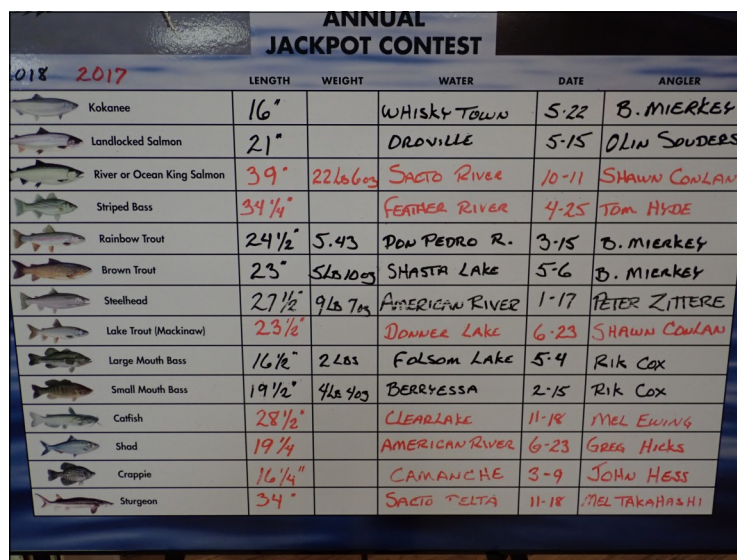 ANNUAL
JACKPOT CONTEST
018 2017
LENGTH WEIGHT WATER DATE ANGLER
Kokanee 16" WHISKY TOWN 5-22 B. MIERKEY
Landlocked Salmon 21" OROVILLE 5-15 OLIN SOUDERS
River or Ocean King Salmon 39" 22 Lbs 6 oz SACTO RIVER 10-11 SHAWN CONLAN
Striped Bass 34 1/4" FEATHER RIVER 4-25 TOM HYDE
Rainbow Trout 24 1/2" 5.43 DON PEDRO R. 3-15 B. MIERKEY
Brown Trout 23" 5 Lb 10 oz SHASTA LAKE 5-6 B. MIERKEY
Steelhead 27 1/2" 9 Lb 7 oz AMERICAN RIVER 1-17 PETER ZITTERE
Lake Trout (Mackinaw) 23 1/2" DONNER LAKE 6-23 SHAWN CONLAN
Large Mouth Bass 16 1/2" 2 LBS FOLSOM LAKE 5-4 RIK COX
Small Mouth Bass 19 1/2" 4 Lb 4 oz BERRYESSA 2-15 RIK COX
Catfish 28 1/2" CLEARLAKE 11-18 MEL EWING
Shad 19 1/4 AMERICAN RIVER 6-23 GREG HICKS
Crappie 16 1/4" CAMANCHE 3-9 JOHN HESS
Sturgeon 34" SACTO DELTA 11-18 MEL TAKAHASHI